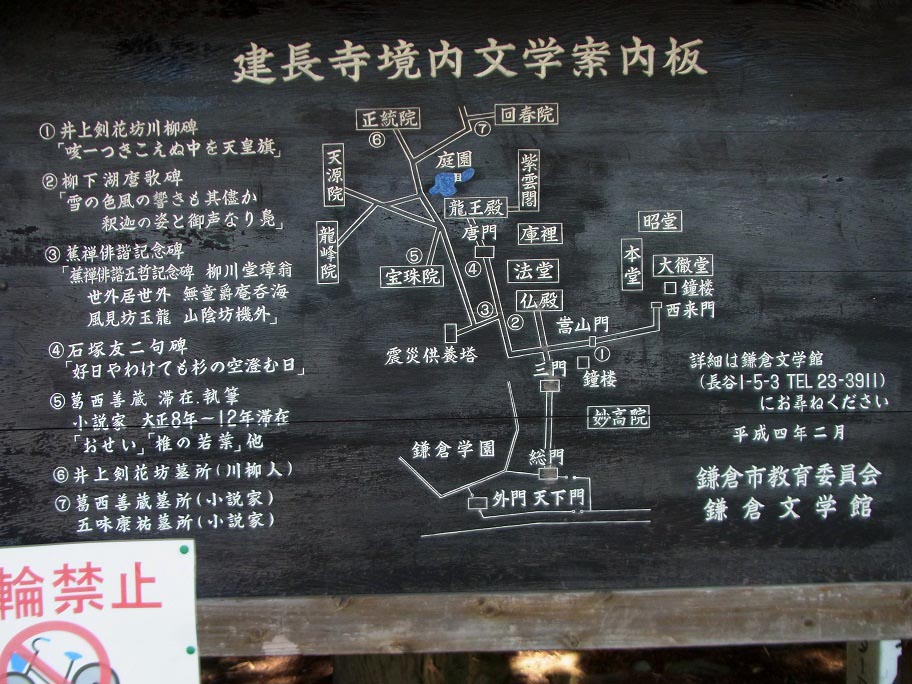 建長寺境内文学案内板
① 井上剣花坊川柳碑
「咳一つきこえぬ中を天皇旗」
② 柳下湖麿歌碑
「雪の色風の響さも其儘か
釈迦の姿と御声なり鳧」
③ 蕉禅俳諧記念碑
「蕉禅俳諧五哲記念碑 柳川堂璋翁
世外居世外 無童爵庵呑海
風見坊玉龍 山陰坊機外」
④ 石塚友二句碑
「好日やわけても杉の空澄む日」
⑤ 葛西善蔵 滞在、執筆
小説家 大正8年－12年滞在
「おせい」「椎の若葉」他
⑥ 井上剣花坊墓所(川柳人)
⑦ 葛西善蔵墓所(小説家)
五味康祐墓所(小説家)
正統院
回春院
⑥
⑦
天源院
庭園
紫雲閣
龍王殿
龍峰院
唐門
庫裡
昭堂
本堂
大徹堂
⑤
宝珠院
④
法堂
鐘楼
仏殿
西来門
③
②
嵩山門
震災供養塔
①
三門
鐘楼
妙高院
鎌倉学園
総門
外門
天下門
詳細は鎌倉文学館
(長谷1-5-3 TEL 23-3911)
にお尋ねください
平成四年二月
鎌倉市教育委員会
鎌倉文学館
輪禁止